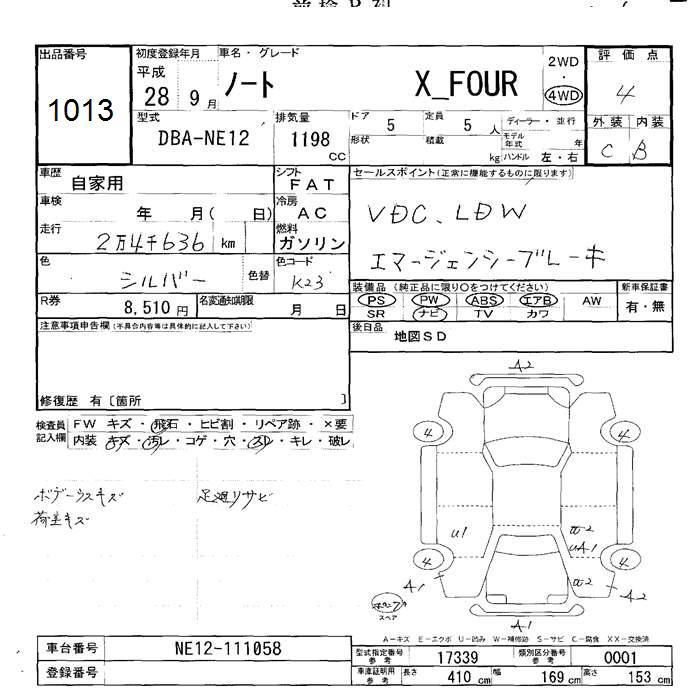 出品番号
1013
初度登録年月
平成
28 9 月
車名・グレード
ノート X_FOUR
2WD
・
4WD
評価点
4
型式
DBA-NE12
排気量
1198
CC
ドア 5
定員 5 人
形状
積載 kg
ディーラー・並行
モデル年式 年
ハンドル 左・右
外装 内装
C B
車歴 自家用
シフト FAT
車検 年 月( 日)
冷房 AC
走行 2万4千636 km
燃料 ガソリン
色 シルバー 色替
色コード K23
R券 8,510円
名変通知期限 月 日
セールスポイント(正常に機能するものに限ります)
VDC、LDW
エマージェンシーブレーキ
装備品 (純正品に限り○をつけてください)
PS PW ABS エアB AW
SR ナビ TV カワ
新車保証書
有・無
後日品 地図SD
注意事項申告欄(不具合内容等は具体的に記入して下さい)
修復歴 有〔箇所 〕
検査員記入欄
FW キズ・飛石・ヒビ割・リペア跡・×要
内装 キズ・汚レ・コゲ・穴・スレ・キレ・破レ
ボデーウスキズ
荷室キズ
足廻リサビ
A2
4 4
U1
UA1
4 4
A1
A2
A1
スペア
A-キズ E-エクボ U-凹み W-補修跡 S-サビ C-腐食 XX-交換済
車台番号 NE12-111058
登録番号
型式指定番号 参考 17339
類別区分番号 参考 0001
車庫証明用 参考 長さ 410 cm 幅 169 cm 高さ 153 cm